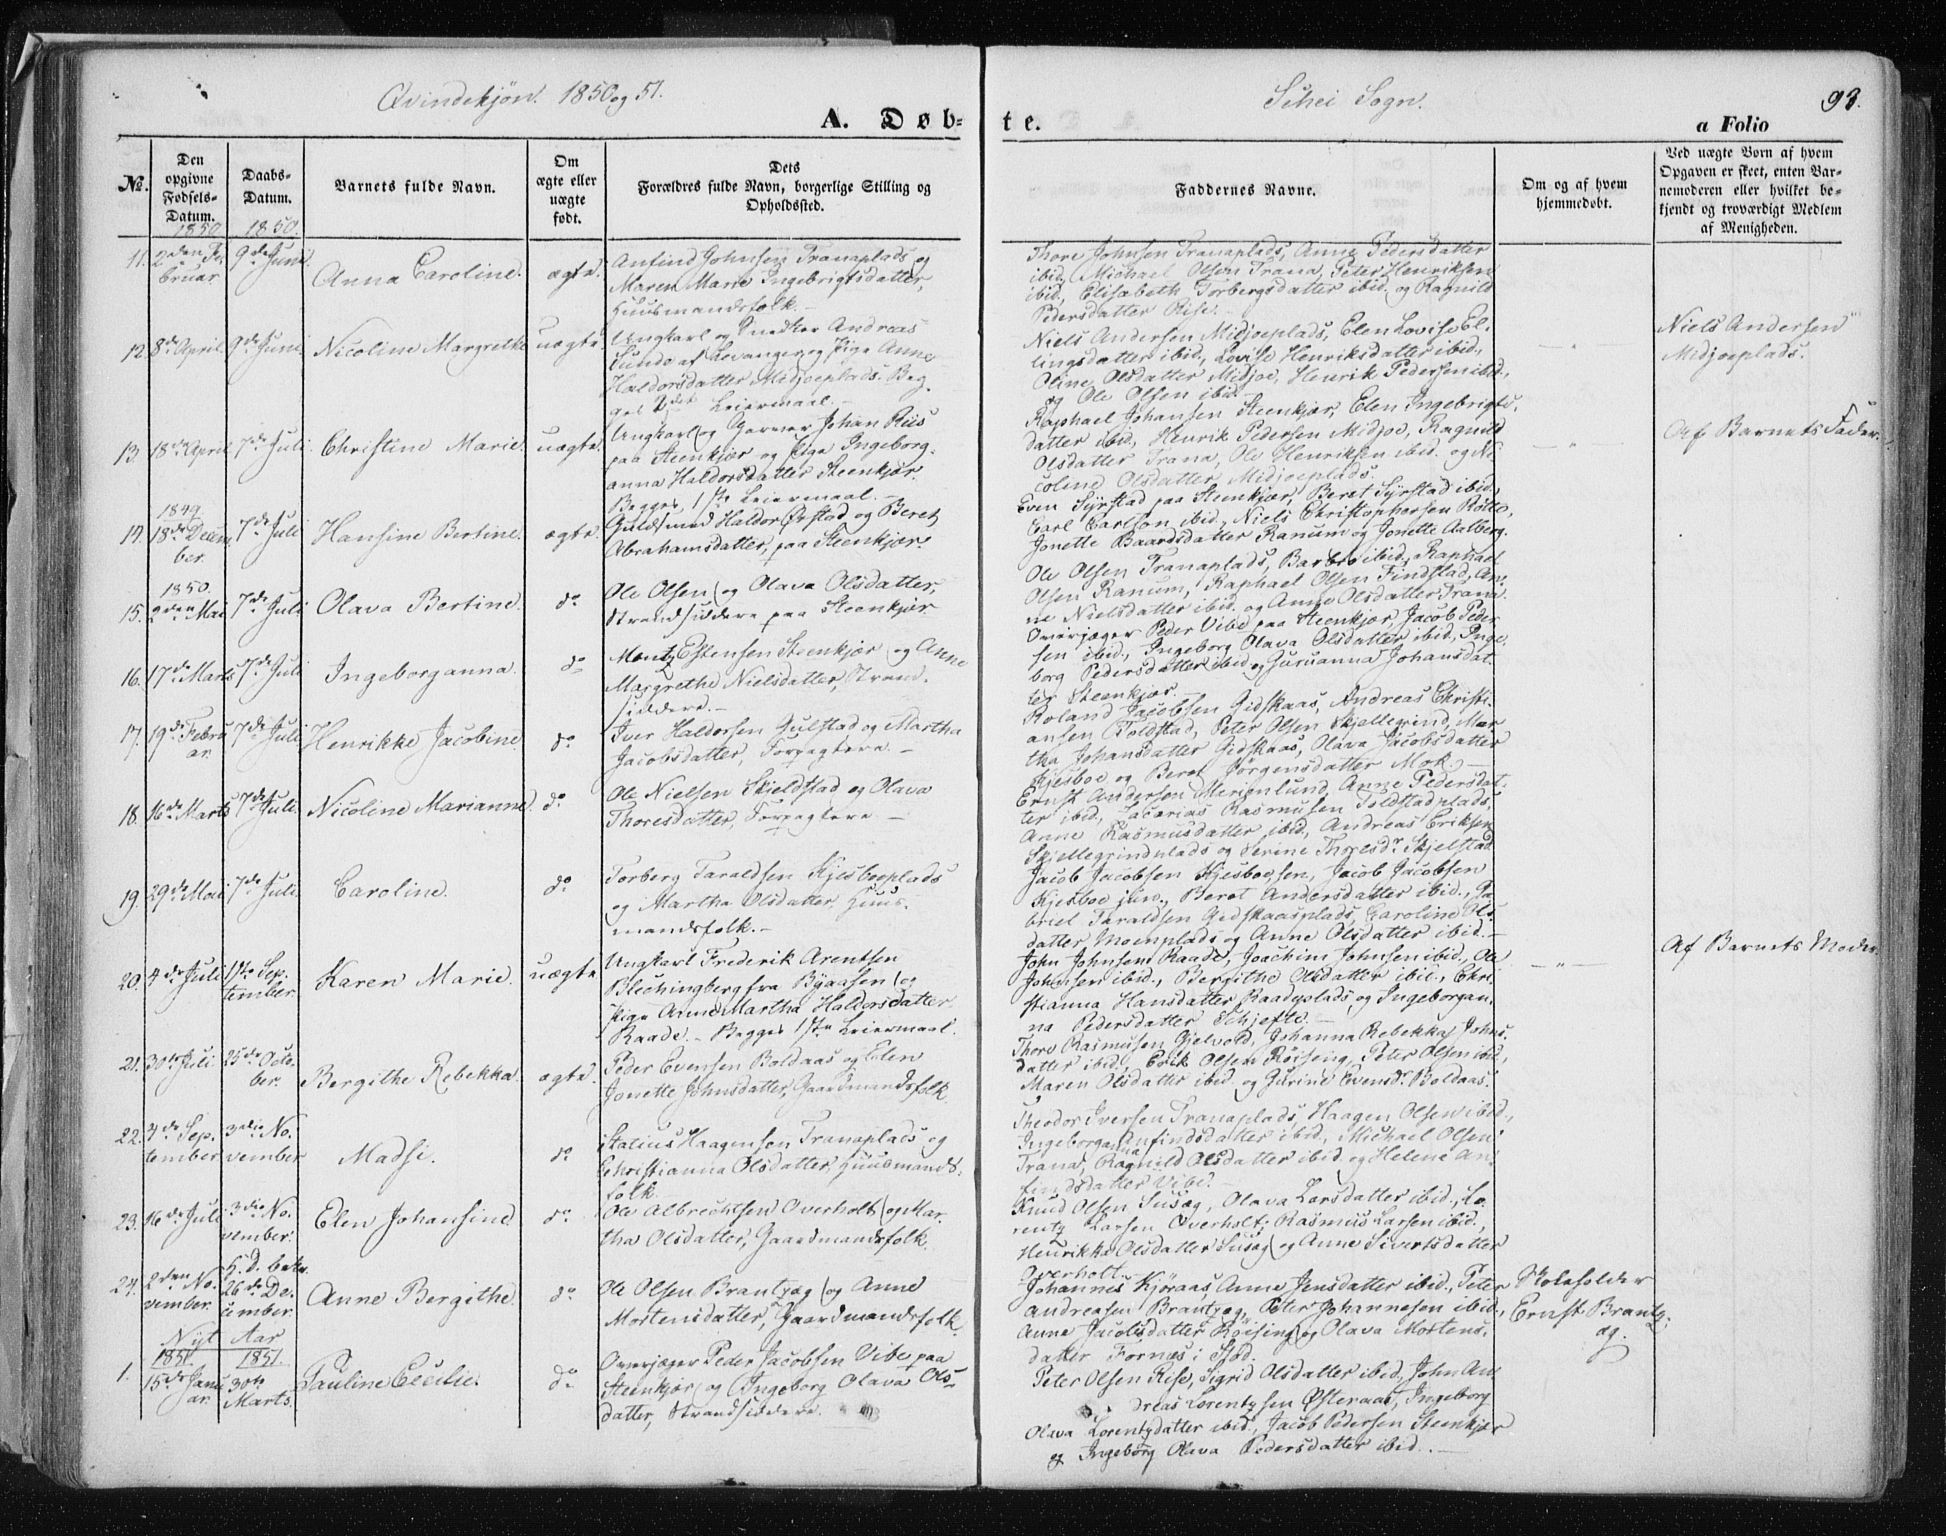 Qvindekjøn. 1850 og 51.
Sehei Sogn.
93.
A. Døb-
te.
a Folio
No.
Den opgivne Fødsels-Datum.
Daabs-Datum.
Barnets fulde Navn.
Om ægte eller uægte født.
Dets Forældres fulde Navn, borgerlige Stilling og Opholdssted.
Faddernes Navne.
Om og af hvem hjemmedøbt.
Ved uægte Born af hvem Opgaven er skeet, enten Barnemoderen eller hvilket bekjendt og troværdigt Medlem af Menigheden.
1850 1850.
11. 2den Februar 9de Juni Anna Caroline. ægte.
Anfind Johnsen Tranaplads og
Maren Marie Ingebrigtsdatter,
Huusmandsfolk.-
Thore Johnsen Tranaplads, Anne Pedersdatter
ibid., Michael Olsen Trana, Peter Henriksen
ibid., Elisabeth Torbergsdatter ibid. og Ragnild
Pedersdatter Rise.
12. 8de April 9de Juni Nicoline Margrethe uægte
Ungkarl og Snedker Andreas
Lundo af Levanger og Pige Anne
Haldorsdatter Midjoeplads. Beg-
ges 2det Leiermaal.-
Niels Andersen Midjoeplads, Elen Lovise El-
lingsdatter ibid., Lovise Henriksdatter ibid.,
Oline Olsdatter Midjoe, Henrik Pedersen ibid.,
og Ole Olsen ibid.
Niels Andersen
Midjoeplads.
13. 18de April 7de Juli Christine Marie. uægte.
Ungkarl og Garver Johan Riis
paa Steenkjær og Pige Ingeborg-
anna Haldorsdatter Steenkjær.
Begges 1ste Leiermaal.-
Raphael Johansen Steenkjær, Elen Ingebrigts-
datter ibid., Henrik Pedersen Midjoe, Ragnild
Olsdatter Trana, Ole Henriksen ibid. og Ni-
coline Olsdatter Midjoeplads.
Af Barnets Fader.
1849.
14. 18de December. 7de Juli Hansine Bertine. ægte.
Guldsmed Haldor Ørstad og Beret
Abrahamsdatter, paa Steenkjær.
Even Syrstad paa Steenkjær, Beret Syrstad ibid.,
Carl Carlson ibid., Niels Christophersen Rotte,
Jonette Baardsdatter Ranum og Jonette Aalberg.
1850.
15. 2den Mai 7de Juli Olava Bertine. do
Ole Olsen og Olava Olsdatter,
Strandsiddere paa Steenkjær.
Ole Olsen Tranaplads, Barbro ibid., Raphael
Olsen Ranum, Raphael Olsen Findstad, An-
ne Nielsdatter ibid. og Anne Olsdatter Trana.
16. 17de Marts 7de Juli Ingeborganna. do
Mentz Estensen Steenkjær og Anne
Margrethe Nielsdatter, Strand-
siddere.-
Overjæger Peder Vibe paa Steenkjær, Jacob Peder-
sen ibid., Ingeborg Olava Olsdatter ibid., Inge-
borg Pedersdatter ibid. og Guruanna Johansdat-
ter Steenkjær.
17. 19de Februar. 7de Juli Henrikke Jacobine do
Iver Haldorsen Gulstad og Martha
Jacobsdatter, Forpagtere.-
Roland Jacobsen Gidskaas, Andreas Christi-
ansen Toldstad, Peter Olsen Skjellegrind, Mar-
tha Johansdatter Gidskaas, Olava Jacobsdatter
Kjesboe og Beret Jørgensdatter Mok.-
18. 16de Marts 7de Juli. Nicoline Marianne do
Ole Nielsen Skjeldstad og Olava
Thoresdatter, Forpagtere.-
Ernst Andersen Merienlund, Anne Pedersdat-
ter ibid., Zacarias Rasmusen Toldstadplads,
Anne Rasmusdatter ibid., Andreas Eriksen
Skjellegrindplads og Serine Thoresdr Skjelstad
19. 29de Mai 7de Juli. Caroline. do
Torberg Taraldsen Kjesboeplads
og Martha Olsdatter, Huus-
mandsfolk.-
Jacob Jacobsen Kjesboe sen., Jacob Jacobsen
Kjesboe jun., Beret Andersdatter ibid., Ga-
briel Taraldsen Gidskaasplads, Caroline Ols-
datter Moenplads og Anne Olsdatter ibid.-
20. 4de Juli 1ste September. Karen Marie. uægte
Ungkarl Frederik Arentsen
Blechingberg fra Byaasen og
Pige Anne Martha Haldorsdatter
Raade.- Begges 1ste Leiermaal.
John Johnsen Raade, Joachim Johnsen ibid., Ole
Johnsen ibid., Bergithe Olsdatter ibid., Chri-
stianna Hansdatter Raadeplads og Ingeborgan-
na Pedersdatter Schjefte.-
Af Barnets Moder.
21. 30te Juli 25de October. Bergithe Rebekka. ægte.
Peder Evensen Boldaas og Elen
Jonette Johnsdatter, Gaardmandsfolk.
Thore Rasmusen Gjelvold, Johanna Rebekka Johns-
datter ibid., Erik Olsen Røising, Peter Olsen ibid.,
Maren Olsdatter ibid. og Gurine Evensdr Boldaas.
22. 4de September 3die November Madsi. do
Statius Haagensen Tranaplads og
Christianna Olsdatter, Huusmands-
folk.
Theodor Iversen Tranaplads, Haagen Olsen ibid.,
Ingeborganna Anfindsdatter ibid., Michael Olsen
Trana, Ragnild Olsdatter ibid. og Helena An-
findsdatter Vibe.-
23. 16de Juli 3die November. Elen Johansine do
Ole Albrechtsen Overholt og Mar-
tha Olsdatter, Gaardmandsfolk.
Knud Olsen Susæg, Olava Larsdatter ibid., Lo-
rentz Larsen Overholt, Rasmus Larsen ibid.,
Henrikka Olsdatter Susæg og Anne Sivertsdatter
Overholt.-
24. 2den November. H. D. bekr. 26de December. Anne Bergithe. do
Ole Olsen Brantzæg og Anne
Mortensdatter, Gaardmandsfolk.
Johannes Kjøraas, Anne Jensdatter ibid., Peter
Andreasen Brantzæg, Peter Johannesen ibid.,
Anne Jacobsdatter Røising og Olava Mortens-
datter Fornæs i Stod.
Skoleholder
Ernst Brantz-
æg.
Nyt Aar
1851. 1851.
1. 15de Januar. 30te Marts. Pauline Cecilie. do
Overjæger Peder Jacobsen Vibe paa
Steenkjær og Ingeborg Olava Ols-
datter, Strandsiddere.
Peter Olsen Rise, Sigrid Olsdatter ibid., John An-
dreas Lorentzsen Østeraas, Ingeborg
Olava Lorentzdatter ibid., Jacob Pedersen Steenkjær
& Ingeborg Olava Pedersdatter ibid.-